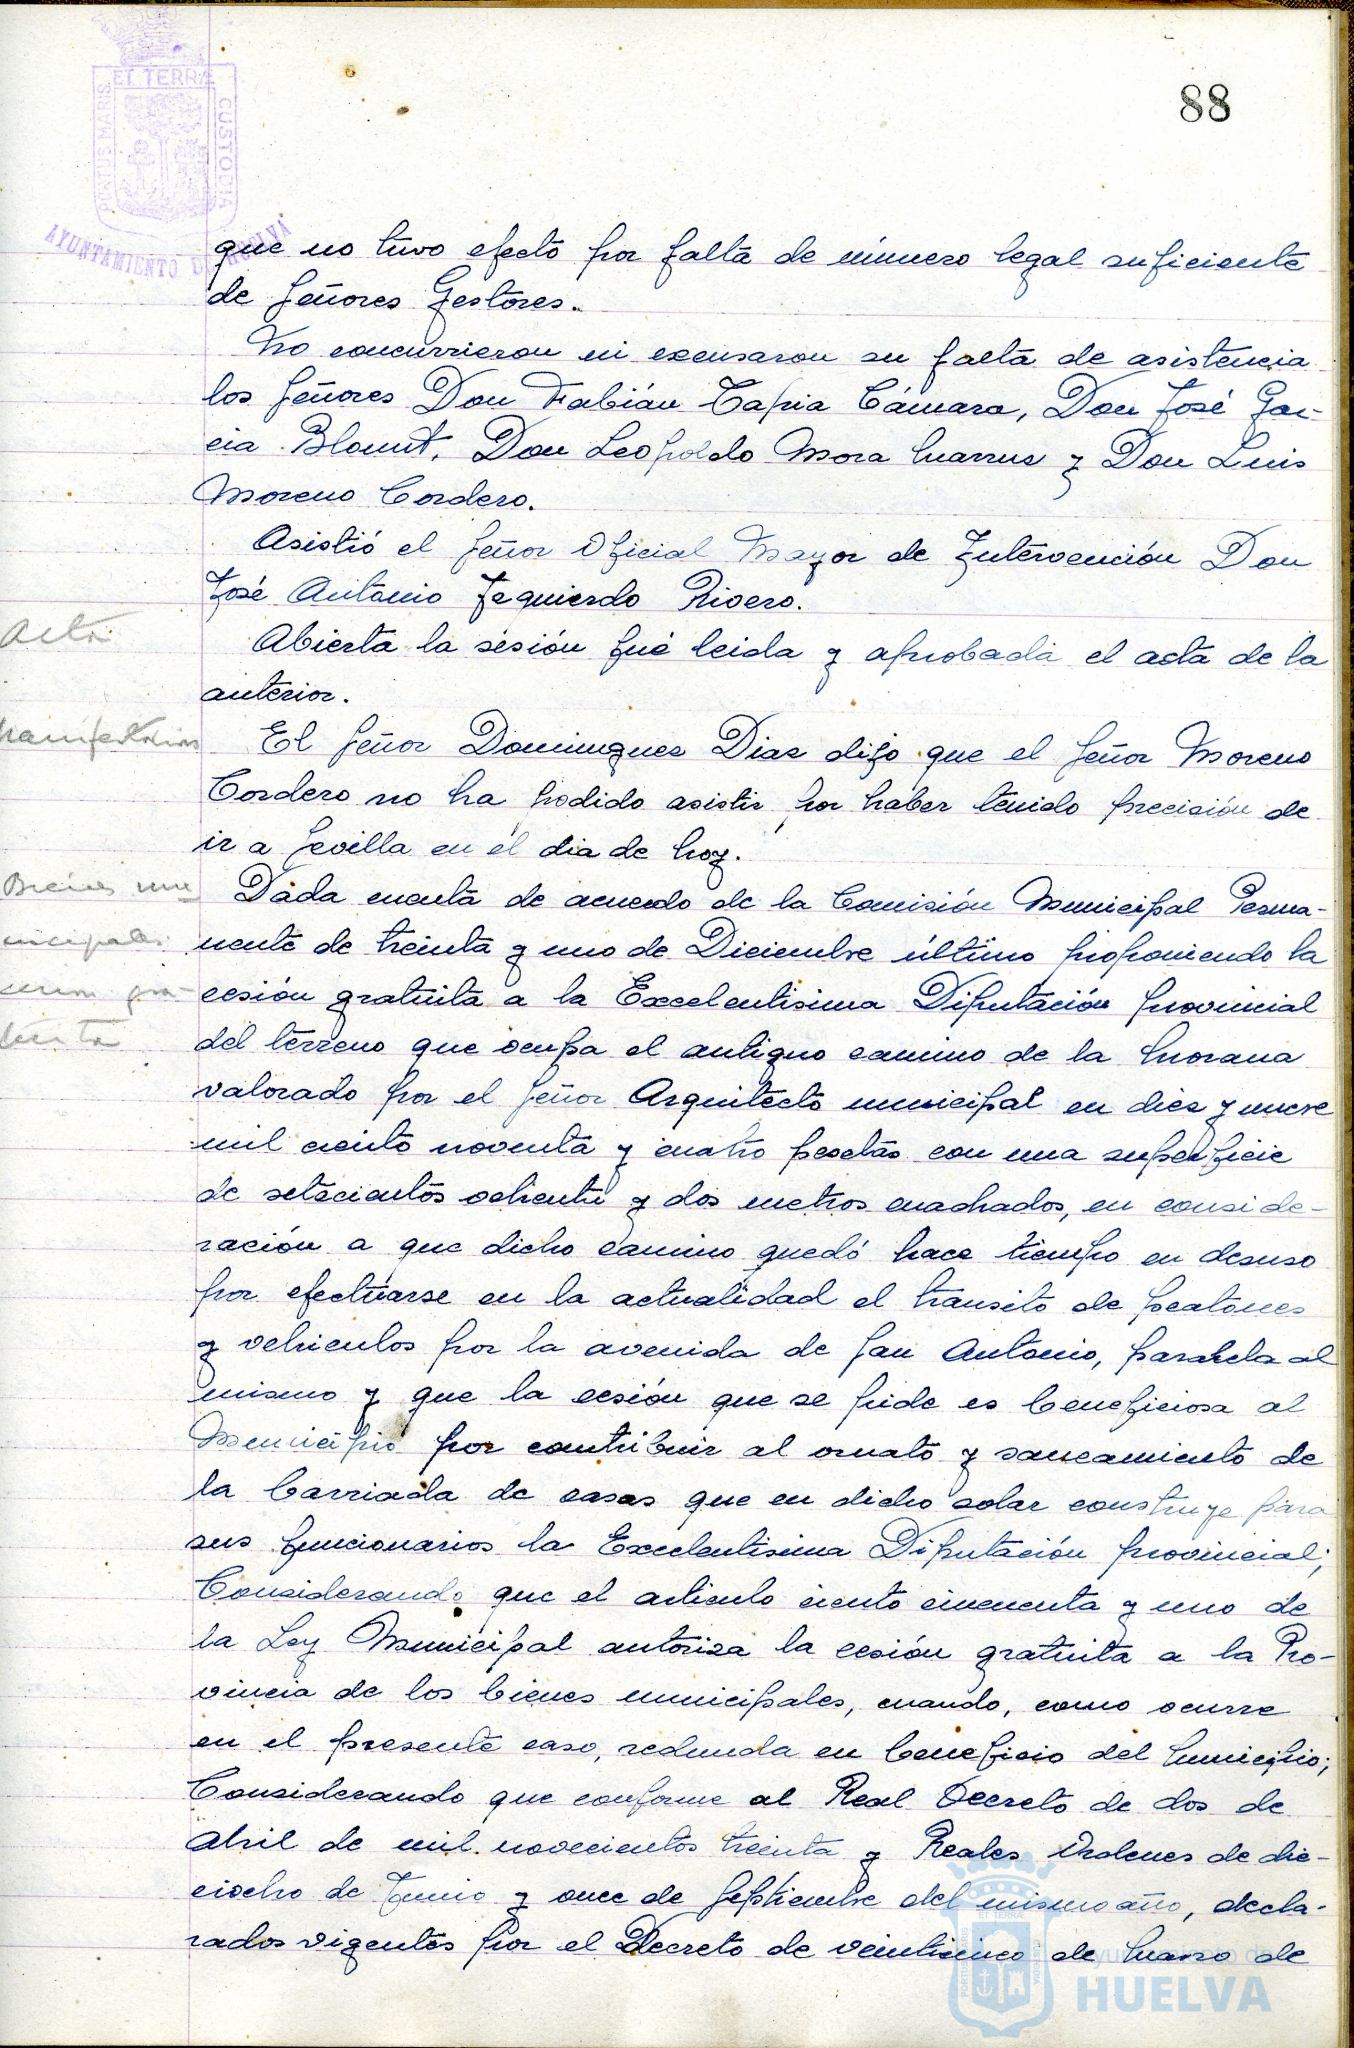 88
ET TERRA
PORTUS MARIS
CUSTODIA
AYUNTAMIENTO DE HUELVA
que no tuvo efecto por falta de número legal suficiente
de Señores Gestores.
No concurrieron ni excusaron su falta de asistencia
los Señores Don Fabián Tapia Cámara, Don José Gar-
cia Blount, Don Leopoldo Mora y Don Luis
Moreno Cordero.
Asistió el Señor Oficial Mayor de Intervención Don
José Antonio Izquierdo Rivero.
Acta
Abierta la sesión fué leida y aprobada el acta de la
anterior.
Manifestacions
El Señor Dominguez Diaz dijo que el Señor Moreno
Cordero no ha podido asistir por haber tenido precisión de
ir a Sevilla en el dia de hoy.
Bienes mu
Dada cuenta de acuerdo de la Comisión Municipal Perma-
nicipales
nente de treinta y uno de Diciembre último proponiendo la
cesion gra-
cesión gratuita a la Excelentisima Diputación provincial
tuita
del terreno que ocupa el antiguo camino de la Morana
valorado por el Señor Arquitecto municipal en diez y nueve
mil ciento noventa y cuatro pesetas con una superficie
de setecientos ochenta y dos metros cuadrados, en conside-
ración a que dicho camino quedó hace tiempo en desuso
por efectuarse en la actualidad el transito de peatones
y vehiculos por la avenida de San Antonio, paralela al
mismo y que la cesión que se pide es beneficiosa al
Municipio por contribuir al ornato y saneamiento de
la barriada de casas que en dicho solar construye para
sus funcionarios la Excelentisima Diputación provincial;
Considerando que el articulo ciento cincuenta y uno de
la Ley Municipal autoriza la cesión gratuita a la Pro-
vincia de los bienes municipales, cuando, como ocurre
en el presente caso, redunda en beneficio del municipio;
Considerando que conforme al Real Decreto de dos de
Abril de mil novecientos treinta y Reales Ordenes de die-
ciocho de Junio y once de Septiembre del mismo año, decla-
rados vigentes por el Decreto de veinticinco de Marzo de
Ayuntamiento de
HUELVA